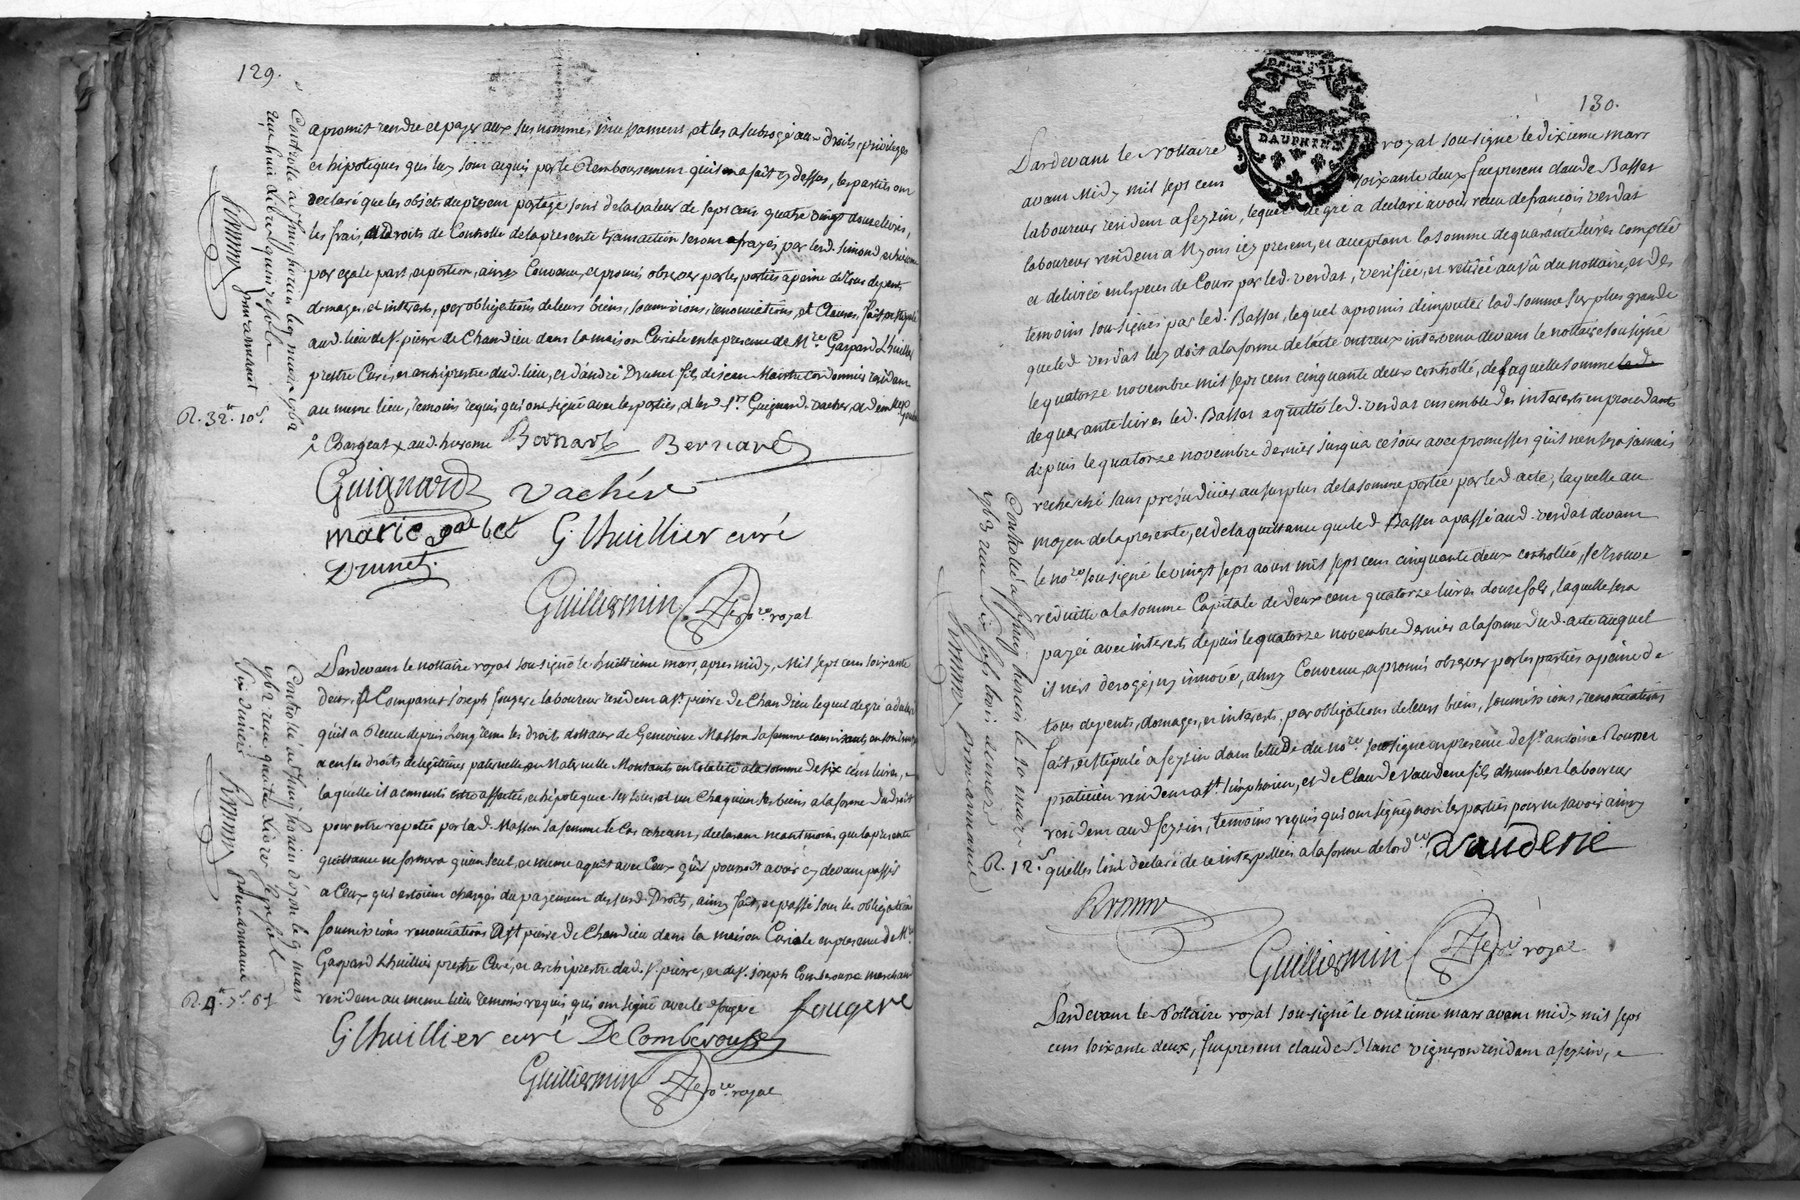 129.
a promis rendre et payer aux susnommés incessament, et les a subrogé aux droits, privileges
et hipoteques qui luy sont acquis par le Remboursement qu'il en a fait cy dessus, les parties ont
declaré que les objets du present partage sont de la valeur de sept cens quatre vingt douze livres,
les frais, et droits de Controlle de la presente transaction seront frayés par led. simond et
par egale part, et portion, ainsy Convenu, et promis observer par les parties a peine de tous depents
domages, et interets, par obligations de leurs biens, soumissions, renonciations, et Clauses, fait et stipulé
aud. lieu de St. pierre de Chandieu dans la maison Curiale en la presence de Mre. Gaspard Lhuillier
prestre Curé, et archiprestre dud. lieu, et d'andré Drunet fils de jean Maitre Cordonnier residant
au meme lieu, temoins requis qui ont signé avec les parties, et les d. srs. Guignard, vacher,
Chargeat x aud. hierome Bernard Bernard
Guignard Vachér
marie gallet G. Lhuillier curé
Drunet.
Guilliermin nore. royal
Controllé a st simphorien le 9 mars 1762
reçu huit livres quinze sols
R. 32lt. 10s.
Pardevant le nottaire royal sousigné le huittieme mars, apres midy, Mil sept cens soixante
deux, fut Comparu joseph fougere laboureur resident a St. pierre de Chandieu lequel de gré a declaré
qu'il a Receu depuis Longtems les droits dottaux de Genevieve Masson sa femme consistants en son trousseau
et en ses droits de legitimes paternelle, et Maternelle Montants en totalité a la somme de six cens livres,
laquelle il a consenti estre affectée, et hipotequée sur tous, et un Chaqu'un ses biens a la forme du droit
pour estre repetée par lad. Masson sa femme le Cas echeant, declarant neantmoins que la presente
quittance ne formera qu'un seul, et meme aquit avec Ceux qu'il pourroit avoir cy devant passés
a Ceux qui estoient chargés du payement desusd. Droits, ainsy fait, et passé sous les obligations
soumissions renonciations a St pierre de Chandieu dans la maison Curiale en presence de Mre.
Gaspard Lhuillier prestre Curé, et archiprestre dud. St. pierre, et de Sr. joseph Comberousse marchand
resident au meme lieu temoins requis qui ont signé avec led. fougere fougere
G. Lhuillier curé De Comberousse
Guilliermin nore. royal
Controllé a st simphorien d'ozon le 9 mars
1762 reçu quatre livres sept sols
six deniers
R. 4lt. 7s. 6d
130.
DAUPHINE
Pardevant le Nottaire royal sousigné le dixieme mars
avant Midy mil sept cens soixante deux, fut present claude Basset
laboureur resident a feyzin, lequel de gré a declaré avoir receu de françois verdat
laboureur resident a icy present, et acceptant la somme de quarante livres comptée
et delivrée en Especes de Cours par led. verdat, verifiée, et retirée au vû du nottaire, et des
temoins sousignés par led. Basset, lequel a promis d'imputer lad. somme sur plus grande
que led. verdat luy doit a la forme de l'acte entreux intervenu devant le nottaire sousigné
le quatorze novembre mil sept cens cinquante deux controllé, de laquelle somme
de quarante livres led. Basset a quitté led. verdat ensemble des interets en procedants
depuis le quatorze novembre dernier jusqu'a ce jour avec promesses qu'il n'en sera jamais
recherché sans prejudicier au surplus de la somme portée par led. acte, laquelle au
moyen de la presente, et de la quittance que led. Basset a passé aud. verdat devant
le nore. sousigné le vingt sept aoust mil sept cens cinquante deux controllée, se trouve
reduitte a la somme Capitale de deux cens quatorze livres douze sols, laquelle sera
payée avec interets depuis le quatorze novembre dernier a la forme dud. acte auquel
il n'est derogé, ny innové, ainsy Convenu, et promis observer par les parties a peine de
tous depents, domages, et interets par obligations de leurs biens, soumissions, renonciations
fait, et stipulé a feyzin dans l'etude du nore. sousigné en presence de Sr. antoine Ronner
praticien resident a St. simphorien, et de Claude vaudene fils d'humbert laboureur
resident aud. feyzin, temoins requis qui ont signé, non les parties pour ne sçavoir ainsy
quelles l'ont declaré de ce interpellées a la forme de l'ordce. Vaudene
Guilliermin nore. royal
Controllé a st simphorien le 20 mars
1762 reçu six sols trois deniers
R. 12s.
Pardevant le Nottaire royal sousigné le onzieme mars avant midy mil sept
cens soixante deux, fut present claude Blanc vigneron resident a feyzin, et